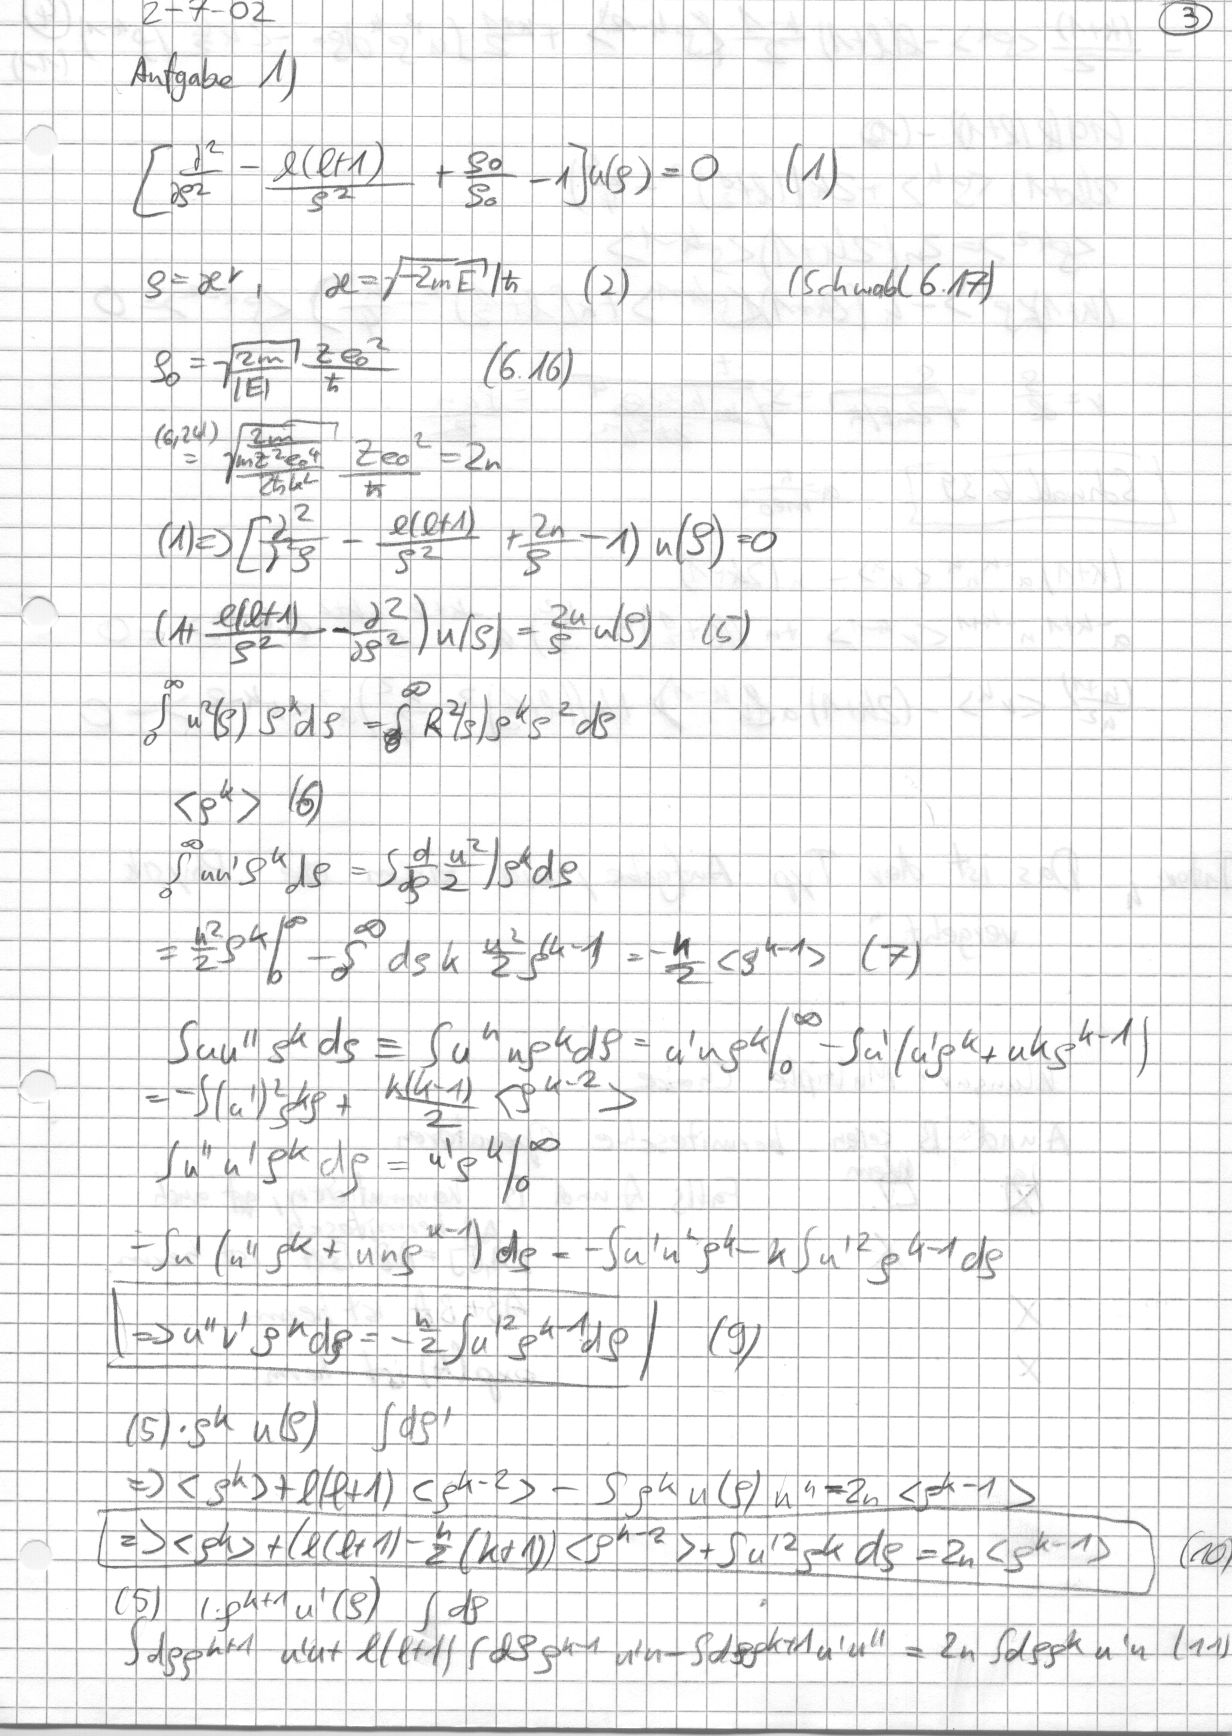 2-7-02
3
Aufgabe 1)
[∂²/∂ρ² - l(l+1)/ρ² + ρ0/ρ0 - 1] u(ρ) = 0 (1)
ρ = ϰr, ϰ = √(-2mE)/ħ (2) (Schwabl 6.17)
ρ0 = √(2m/|E|) Ze0²/ħ (6.16)
(6,24) = √(2m/(mZ²e0⁴/2ħn²)) Ze0²/ħ = 2n
(1) => [∂²/∂ρ - l(l+1)/ρ² + 2n/ρ - 1) u(ρ) = 0
(1 + l(l+1)/ρ² - ∂²/∂ρ²) u(ρ) = 2n/ρ u(ρ) (5)
∫0^∞ u²(ρ) ρ^k dρ = ∫0^∞ R²(ρ) ρ^k ρ² dρ
<ρ^k> (6)
∫0^∞ uu' ρ^k dρ = ∫ d/dρ u²/2) ρ^k dρ
= u²/2 ρ^k |0^∞ - ∫0^∞ dρ k u²/2 ρ^(k-1) = -k/2 <ρ^(k-1)> (7)
∫uu'' ρ^k dρ ≡ ∫u'' uρ^k dρ = u'uρ^k |0^∞ - ∫u' (u'ρ^k + ukρ^(k-1))
= -∫(u')² ρ^k dρ + k(k-1)/2 <ρ^(k-2)>
∫u'' u' ρ^k dρ = u'ρ^k |0^∞
-∫u' (u'' ρ^k + unρ^(k-1)) dρ = -∫u'u''ρ^k - k∫u'² ρ^(k-1) dρ
=> u''u' ρ^k dρ = -k/2 ∫u'² ρ^(k-1) dρ (9)
(5) · ρ^k u(ρ) ∫dρ'
=> <ρ^k> + l(l+1) <ρ^(k-2)> - ∫ρ^k u(ρ) u'' = 2n <ρ^(k-1)>
=> <ρ^k> + (l(l+1) - k/2 (k+1)) <ρ^(k-2)> + ∫u'² ρ^k dρ = 2n <ρ^(k-1)> (10)
(5) 1·ρ^(k+1) u'(ρ) ∫dρ
∫dρρ^(k+1) u'u + l(l+1) ∫dρρ^(k-1) u'u - ∫dρρ^(k+1) u'u'' = 2n ∫dρρ^k u'u (11)